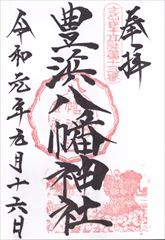 奉拝
豊浜八幡神社
令和元年五月十六日